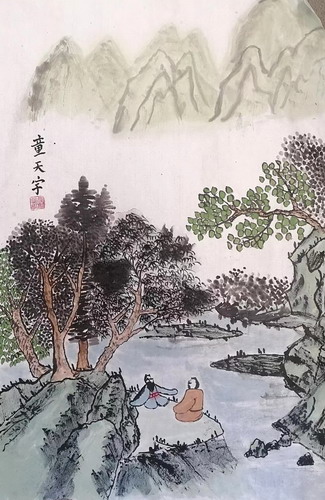 童天宇